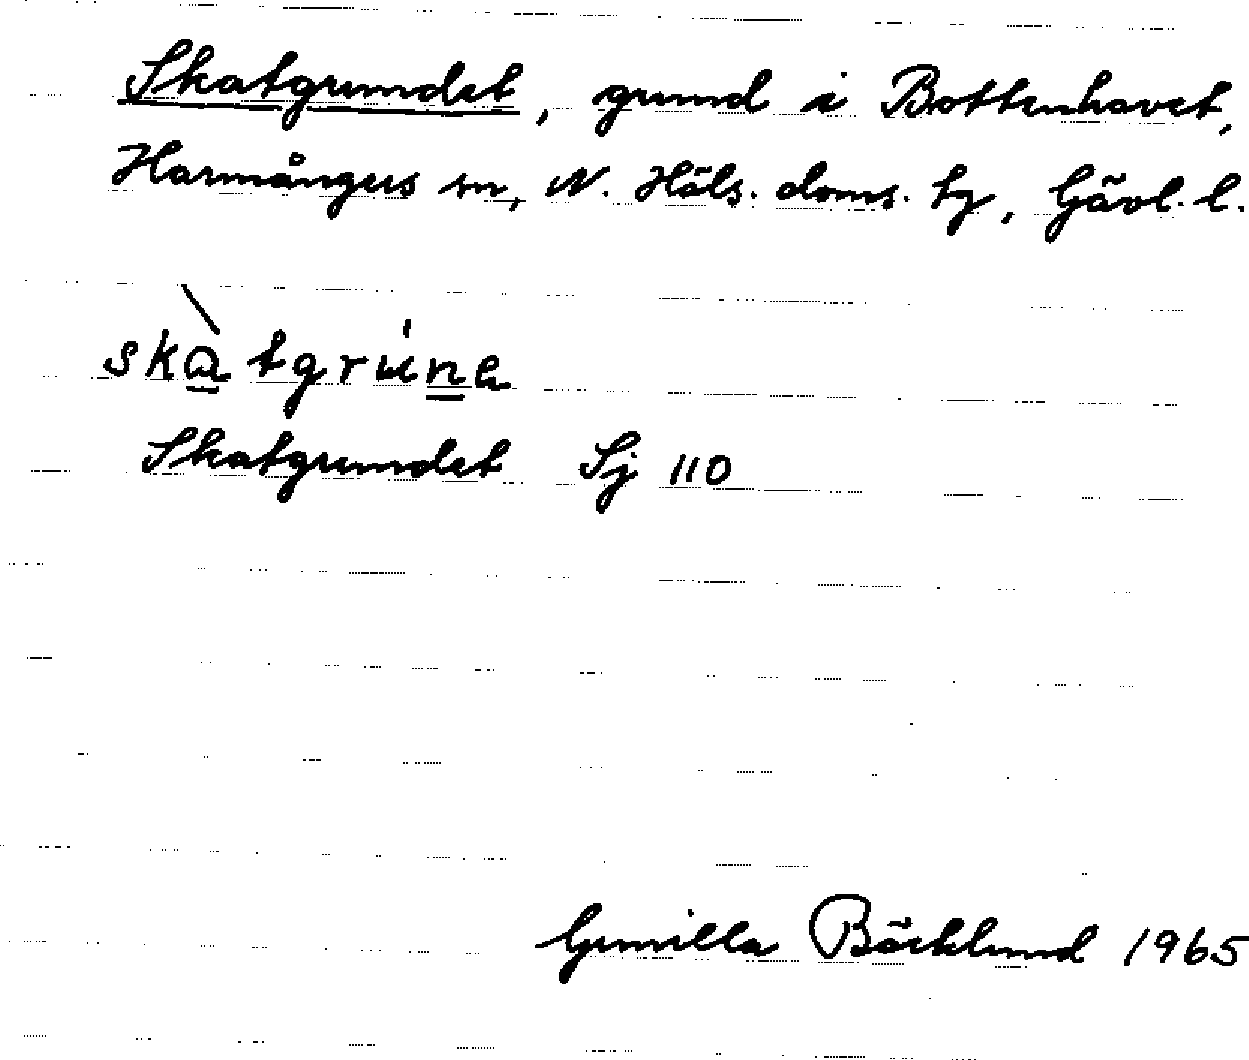 Skatgrundet, grund i Bottenhavet,
Harmångers sn, N. Häls. doms. hg, Gävl. l.
skàtgrúna
Skatgrundet Sj 110
Gunilla Bäcklund 1965